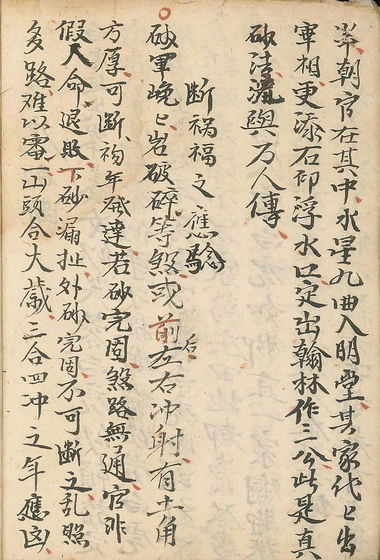 半朝官在其中水星九曲入明堂其家代々出
宰相更添石印浮水口定出翰林作三公此是真
砂法流與万人傳
断禍福之應驗
砂軍峗々岩破碎等煞或前后左右冲射有土角
方厚可断初年發達若砂完固煞路無通官非
假人命退敗下砂漏扯外砂完固不可断之乱照
多路难以露一山頭合大歲三合四冲之年應凶